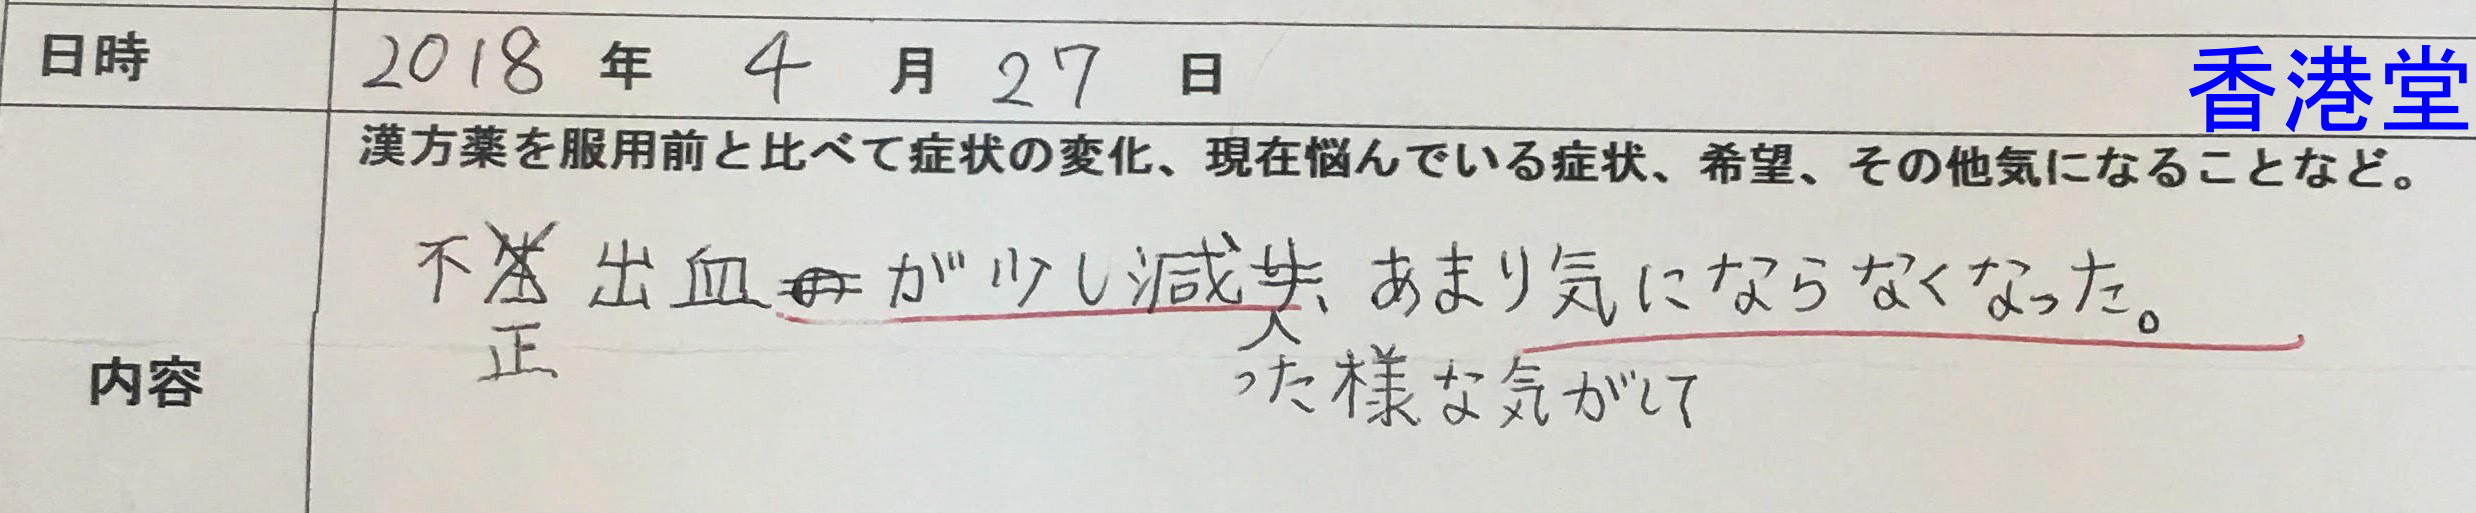 日時 2018 年 4 月 27 日
香港堂
漢方薬を服用前と比べて症状の変化、現在悩んでいる症状、希望、その他気になることなど。
内容
不正出血が少し減った様な気がして、あまり気にならなくなった。